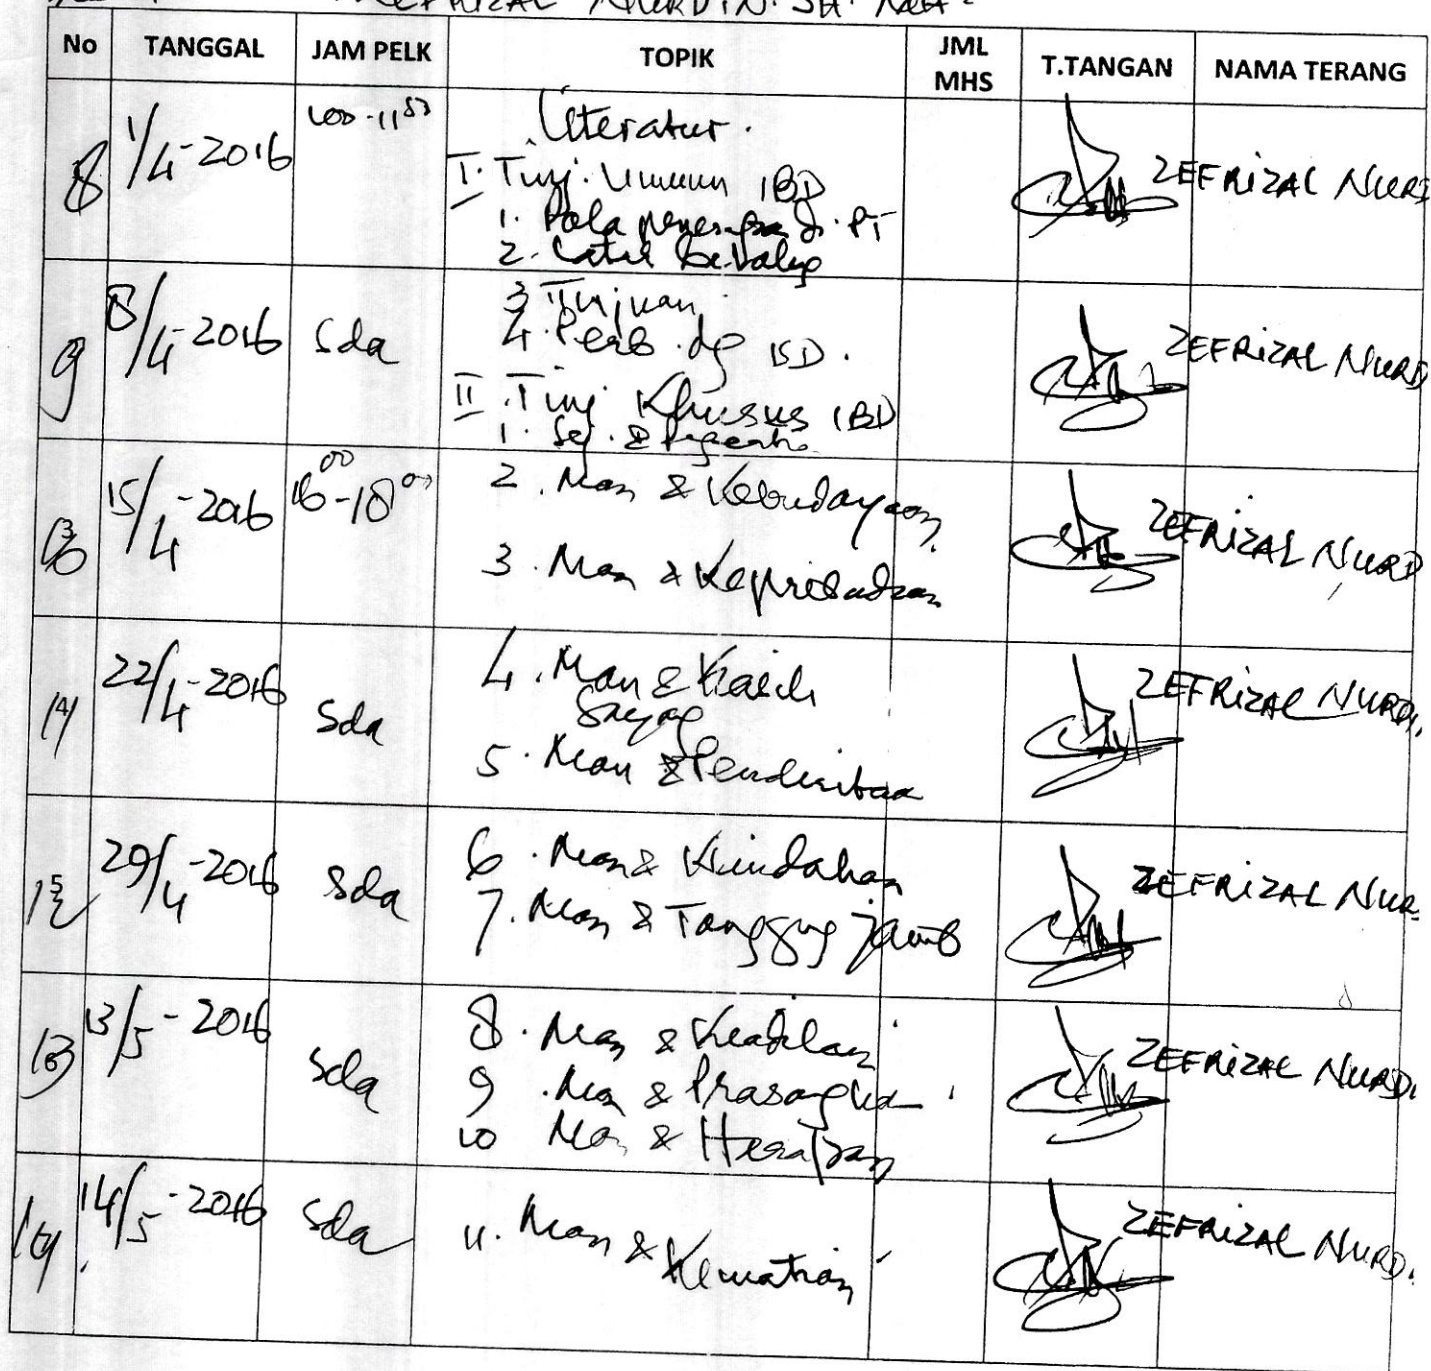 ZEFRIZAL NURDIN. SH. MH.
No TANGGAL JAM PELK TOPIK JML MHS T.TANGAN NAMA TERANG
8 1/4-2016 Literatur.
I. Tinj. Umum IBD
1. Pola di PT
2. Latar
ZEFRIZAL NURD
9 8/4-2016 Sda 3 Tujuan
4. Perb. dg ISD.
II. Tinj Khusus IBD
1. Sej. &
ZEFRIZAL NURD
15/4-2016 16 00 - 18 00 2. Man & Kebudayaan
3. Man & Kepribadian
ZEFRIZAL NURD
22/4-2016 Sda 4. Man & Kasih
Sayang
5. Man & Penderitaan
ZEFRIZAL NURDI.
29/4-2016 Sda 6. Man & Keindahan
7. Man & Tanggung jawab
ZEFRIZAL NUR
13/5-2016 Sda 8. Man & Keadilan
9. Man & Prasangka
10 Man & Harapan
ZEFRIZAL NURDI.
14/5-2016 Sda 11. Man & Kematian
ZEFRIZAL NURD.